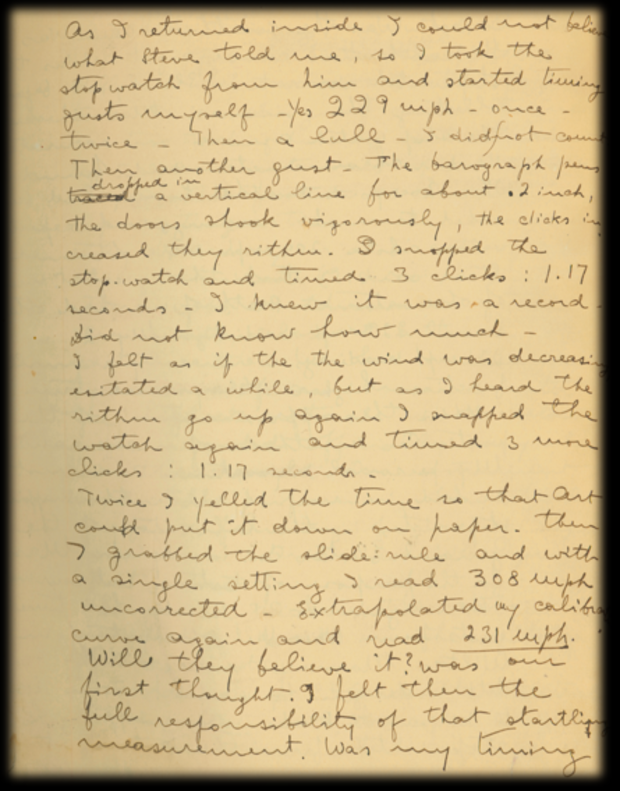 As I returned inside I could not believe
what Steve told me, so I took the
stopwatch from him and started timing
gusts myself - Yes 229 mph - once -
twice - Then a lull - I did not count
Then another gust - The barograph pens
traced dropped in a vertical line for about .2 inch,
the doors shook vigorously, the clicks in
creased they rithm. I snapped the
stop-watch and timed 3 clicks : 1.17
seconds - I knew it was a record
Did not know how much -
I felt as if the the wind was decreasing
esitated a while, but as I heard the
rithm go up again I snapped the
watch again and timed 3 more
clicks : 1.17 seconds -
Twice I yelled the time so that Art
could put it down on paper. Then
I grabbed the slide-rule and with
a single setting I read 308 mph
uncorrected - Extrapolated my calibra
curve again and read 231 mph.
Will they believe it? was our
first thought. I felt then the
full responsibility of that startling
measurement. Was my timing